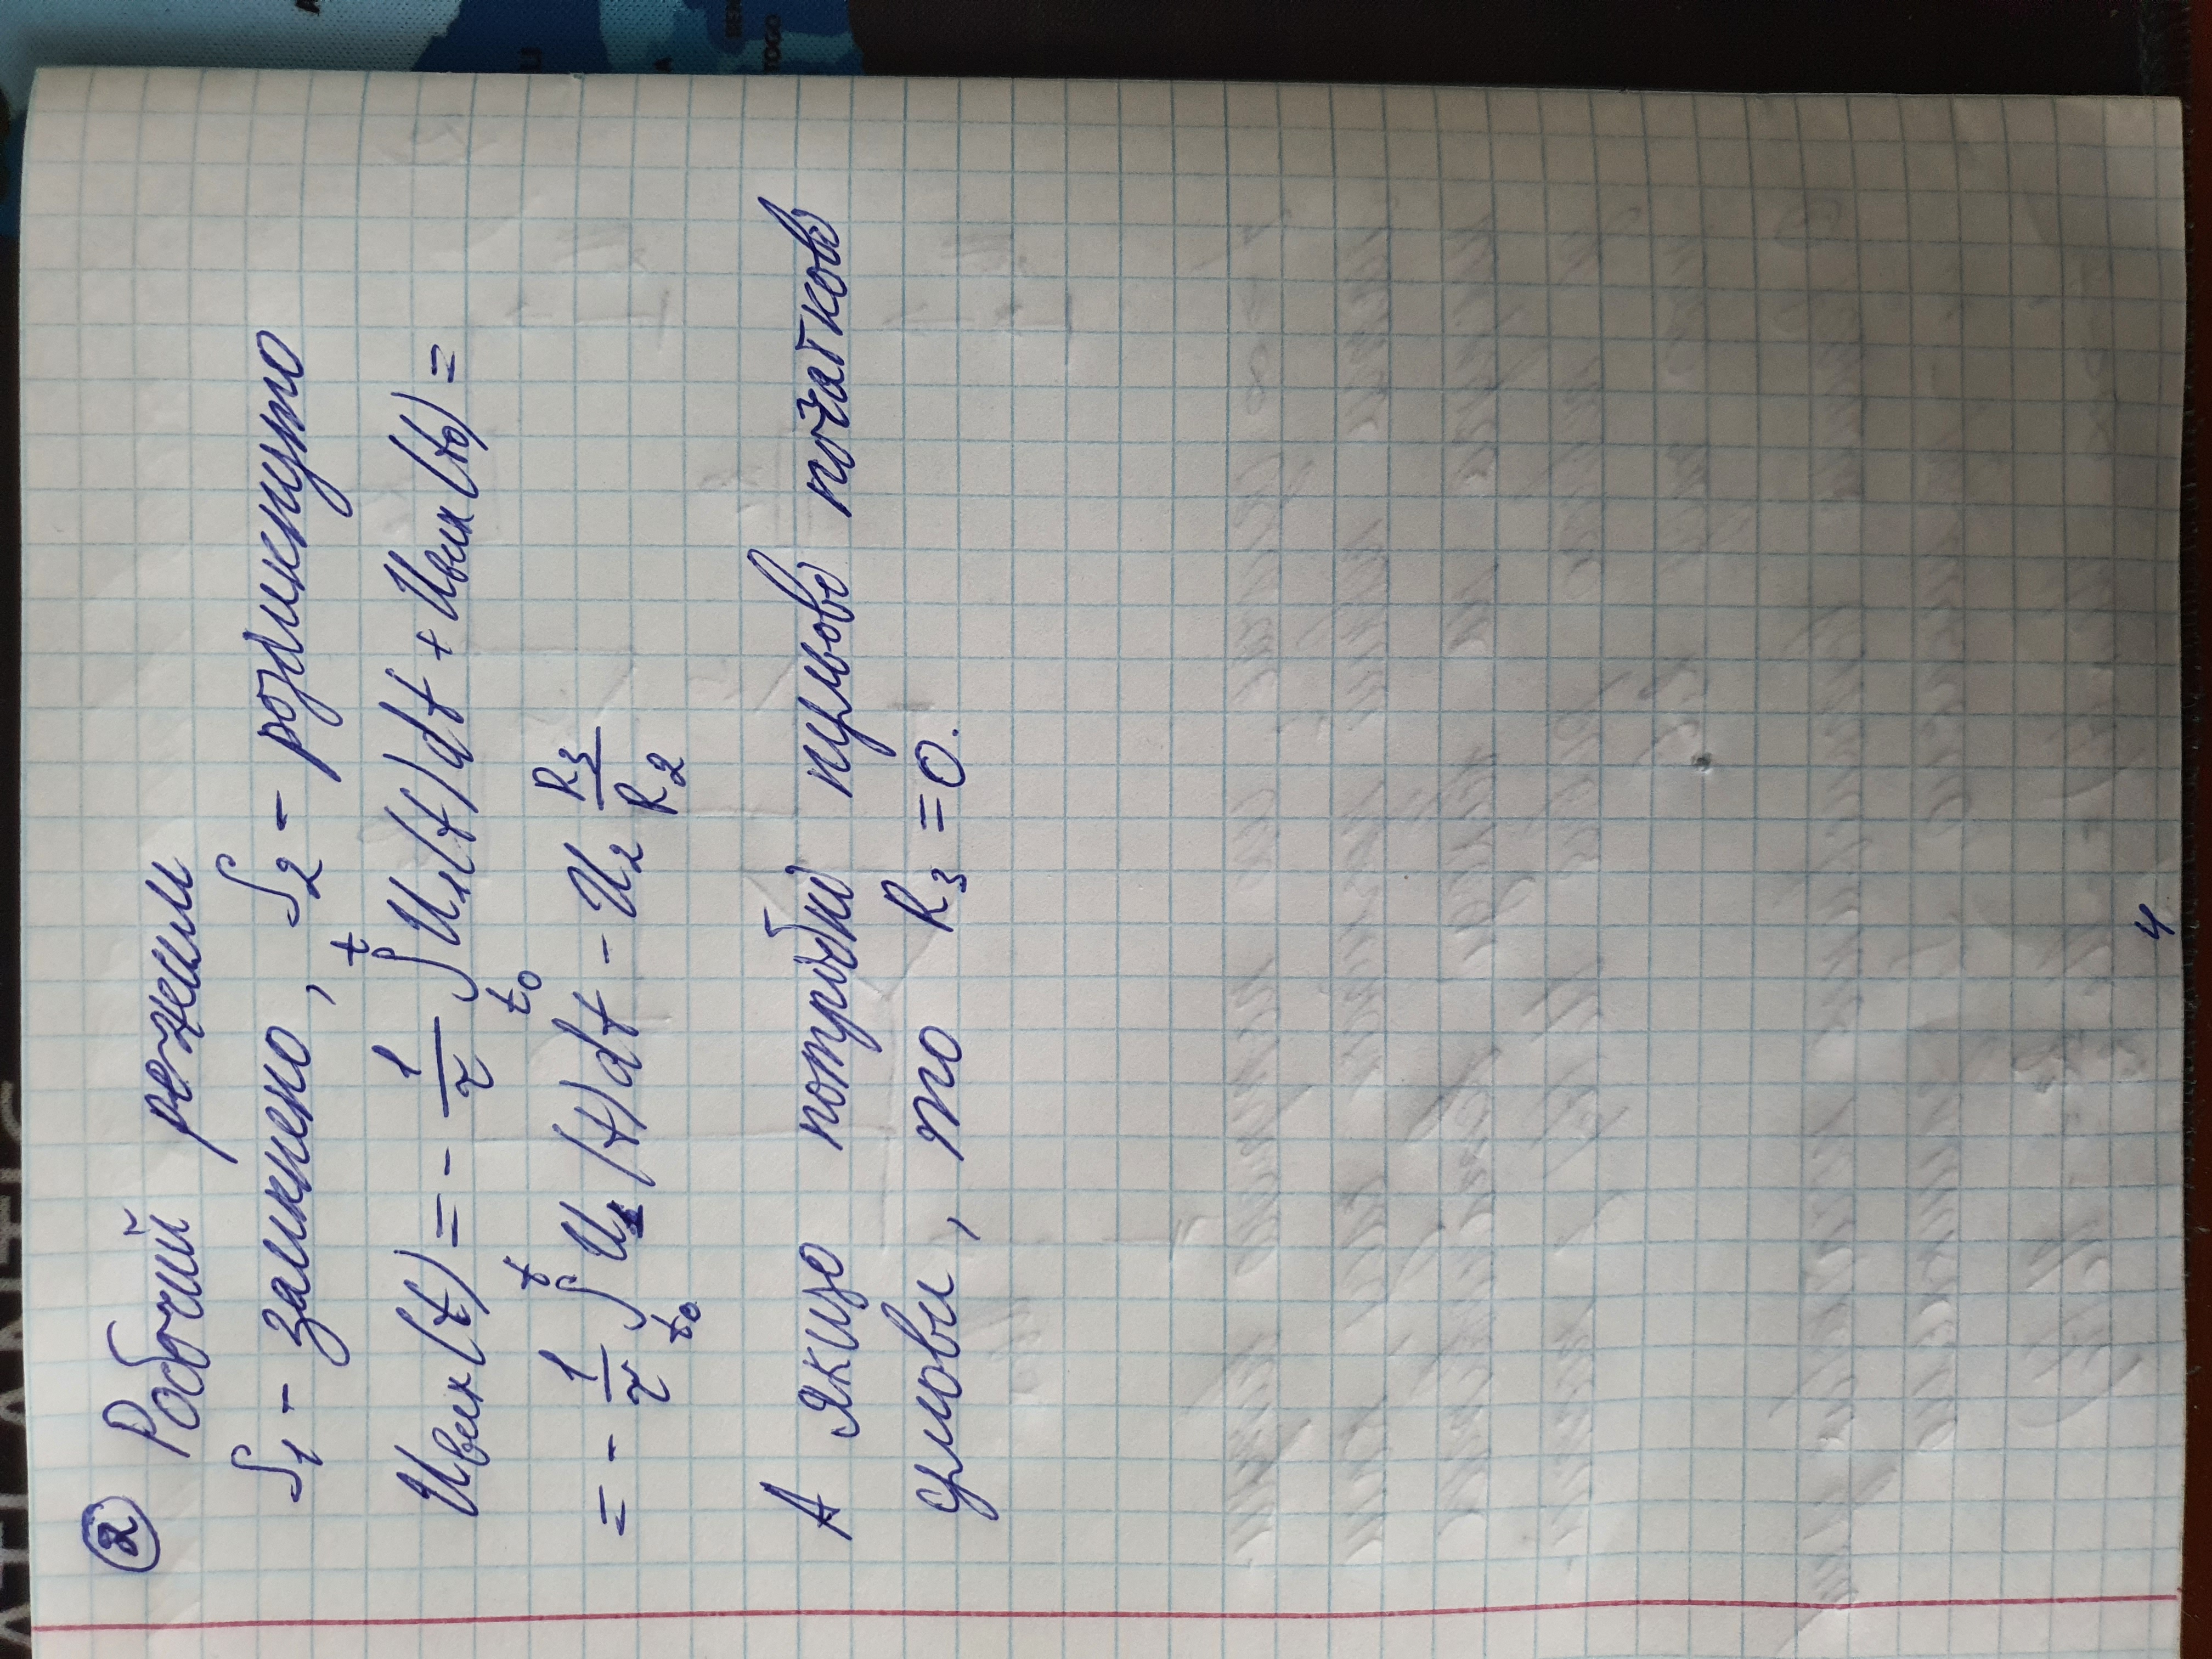 ATLANTIC
② Робочий режим
S₁ - замкнено, S₂ - розімкнуто
Uвих(t) = - 1/τ ∫_{t₀}^{t} U₁(t)dt + Uвих(t₀) =
= - 1/τ ∫_{t₀}^{t} U₁(t)dt - U₂ R₃/R₂
А якщо потрібні нульові початкові
умови, то R₃ = 0.
4
TOGO